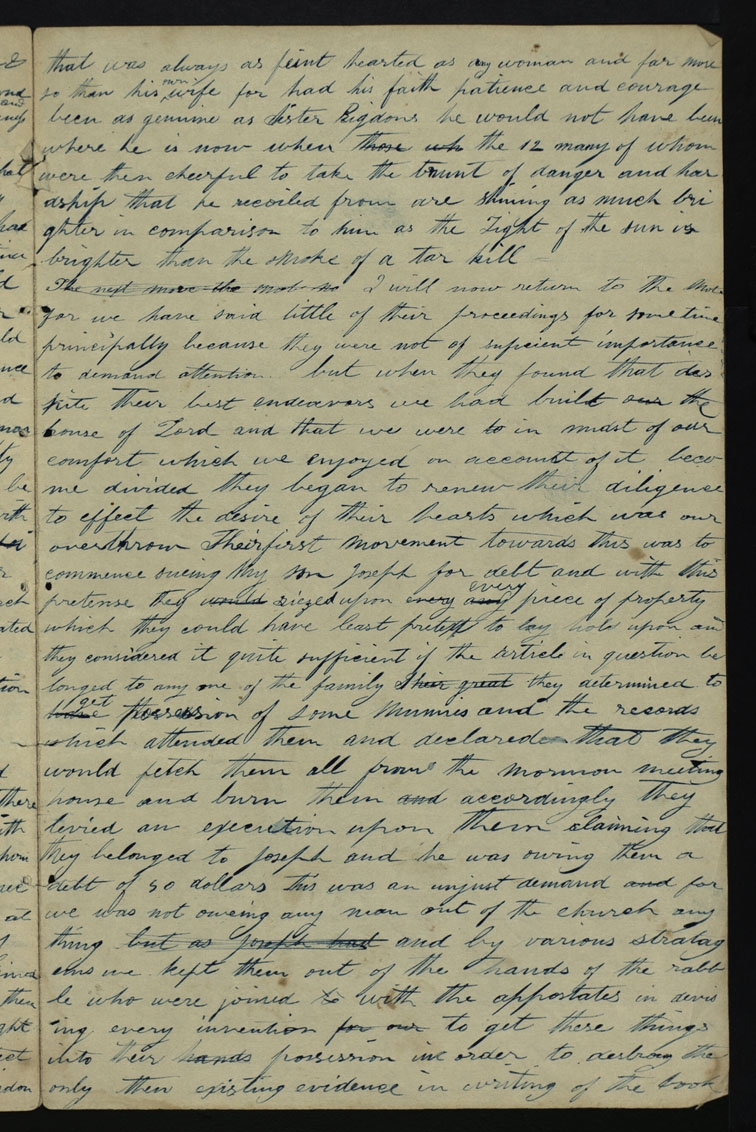 that was always as feint hearted as any woman and far more
so than his own wife for had his faith patience and courage
been as genuine as Sister Rigdons he would not have been
where he is now when those wh the 12 many of whom
were then cheerful to take the brunt of danger and har
dship that he recoiled from are shining as much bri
ghter in comparison to him as the Light of the sun is
brighter than the smoke of a tar kill
The next move the mob m I will now return to the
for we have said little of their proceedings for some time
principally because they were not of supicient importance
to demand attention but when they found that des
pite their best endeavors we had build our the
house of Lord and that we were to in midst of our
comfort which we enjoyed on account of it beco
me divided they began to renew their diligence
to effect the desire of their hearts which was our
overthrow Their first movement towards this was to
commence sueing My son Joseph for debt and with this
pretense they would siezed upon every any every piece of property
which they could have least pretext to lay hold upon an
they considered it quite sufficient if the article in question be
longed to any one of the family their great they determined to
have get possession of some Mumies and the records
which attended them and declared that they
would fetch them all from the mormon meeting
house and burn them and accordingly they
levied an execution upon them claiming that
they belonged to Joseph and he was owing them a
debt of 50 dollars this was an unjust demand and for
we was not oweing any man out of the church any
thing but as Joseph had and by various stratag
ems we kept them out of the hands of the rabb
le who were joined to with the appostates in devis
ing every invention for our to get these things
into their hands possession in order to destroy the
only then existing evidence in writing of the book